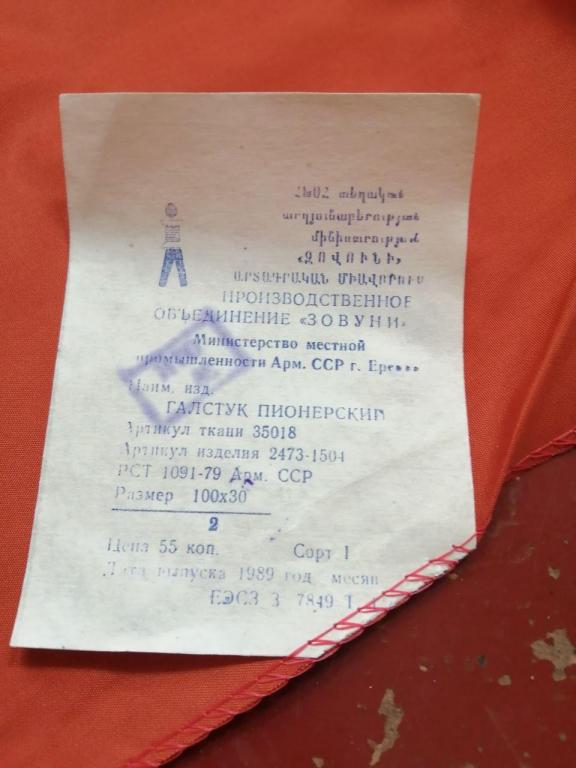 ՀԽՍՀ տեղական
արդյունաբերության
մինիստրության
«ԶՈՎՈՒՆԻ»
ԱՐՏԱԴՐԱԿԱՆ ՄԻԱՎՈՐՈՒՄ
ПРОИЗВОДСТВЕННОЕ
ОБЪЕДИНЕНИЕ «ЗОВУНИ»
Министерство местной
промышленности Арм. ССР г. Ереван
Наим. изд.
ГАЛСТУК ПИОНЕРСКИЙ
Артикул ткани 35018
Артикул изделия 2473-1504
РСТ 1091-79 Арм. ССР
Размер 100х30
2
Цена 55 коп. Сорт 1
Дата выпуска 1989 год месяц
ЕЭСЗ З 7849 Т